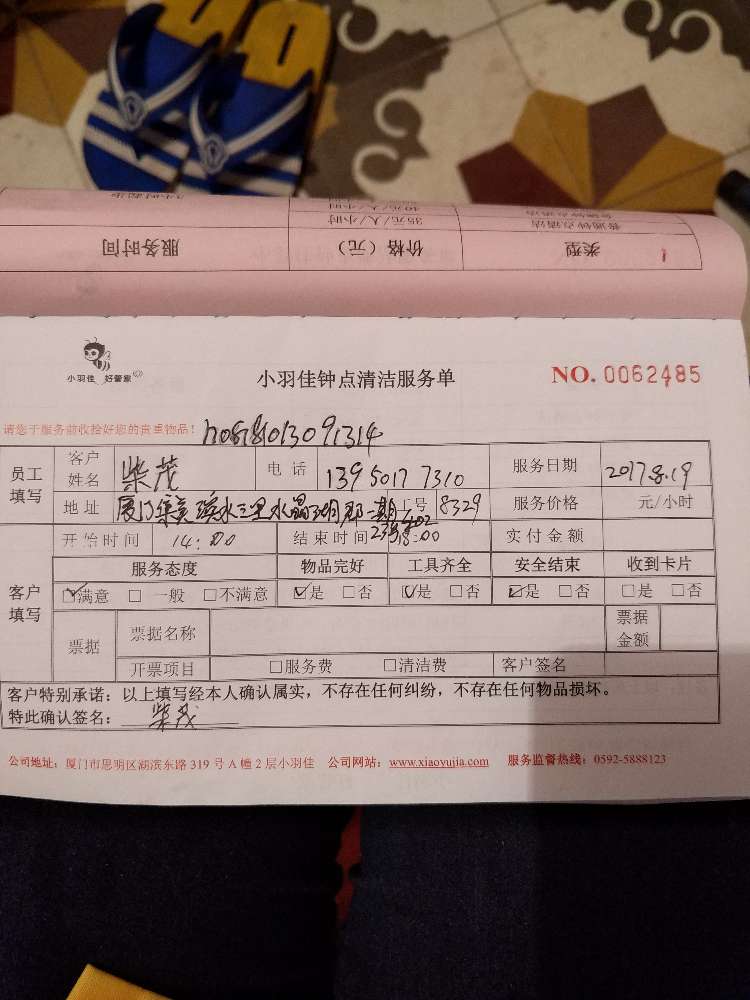 服务时间 价格（元） 类型
35元/人/小时 普通钟点清洁
小羽佳 好管家
小羽佳钟点清洁服务单 NO. 0062485
请您于服务前收拾好您的贵重物品！
员工填写 客户姓名 柴茂 电话 13950177310 服务日期 2017.8.19
地址 工号 8329 服务价格 元/小时
开始时间 14:00 结束时间 18:00 实付金额
客户填写 服务态度 物品完好 工具齐全 安全结束 收到卡片
☑满意 □一般 □不满意 ☑是 □否 ☑是 □否 ☑是 □否 □是 □否
票据 票据名称 票据金额
开票项目 □服务费 □清洁费 客户签名
客户特别承诺：以上填写经本人确认属实，不存在任何纠纷，不存在任何物品损坏。
特此确认签名： 柴茂
公司地址：厦门市思明区湖滨东路 319 号 A 幢 2 层小羽佳 公司网站：www.xiaoyujia.com 服务监督热线：0592-5888123